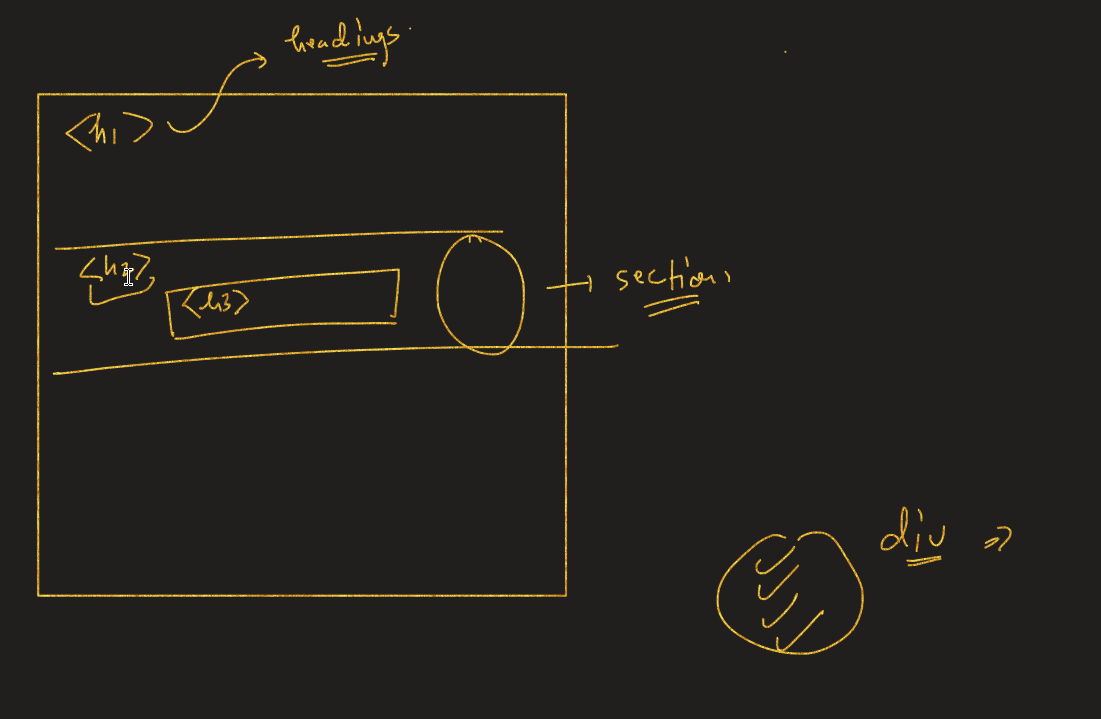 headings.
<h1>
<h2>
<h3>
section
div =>